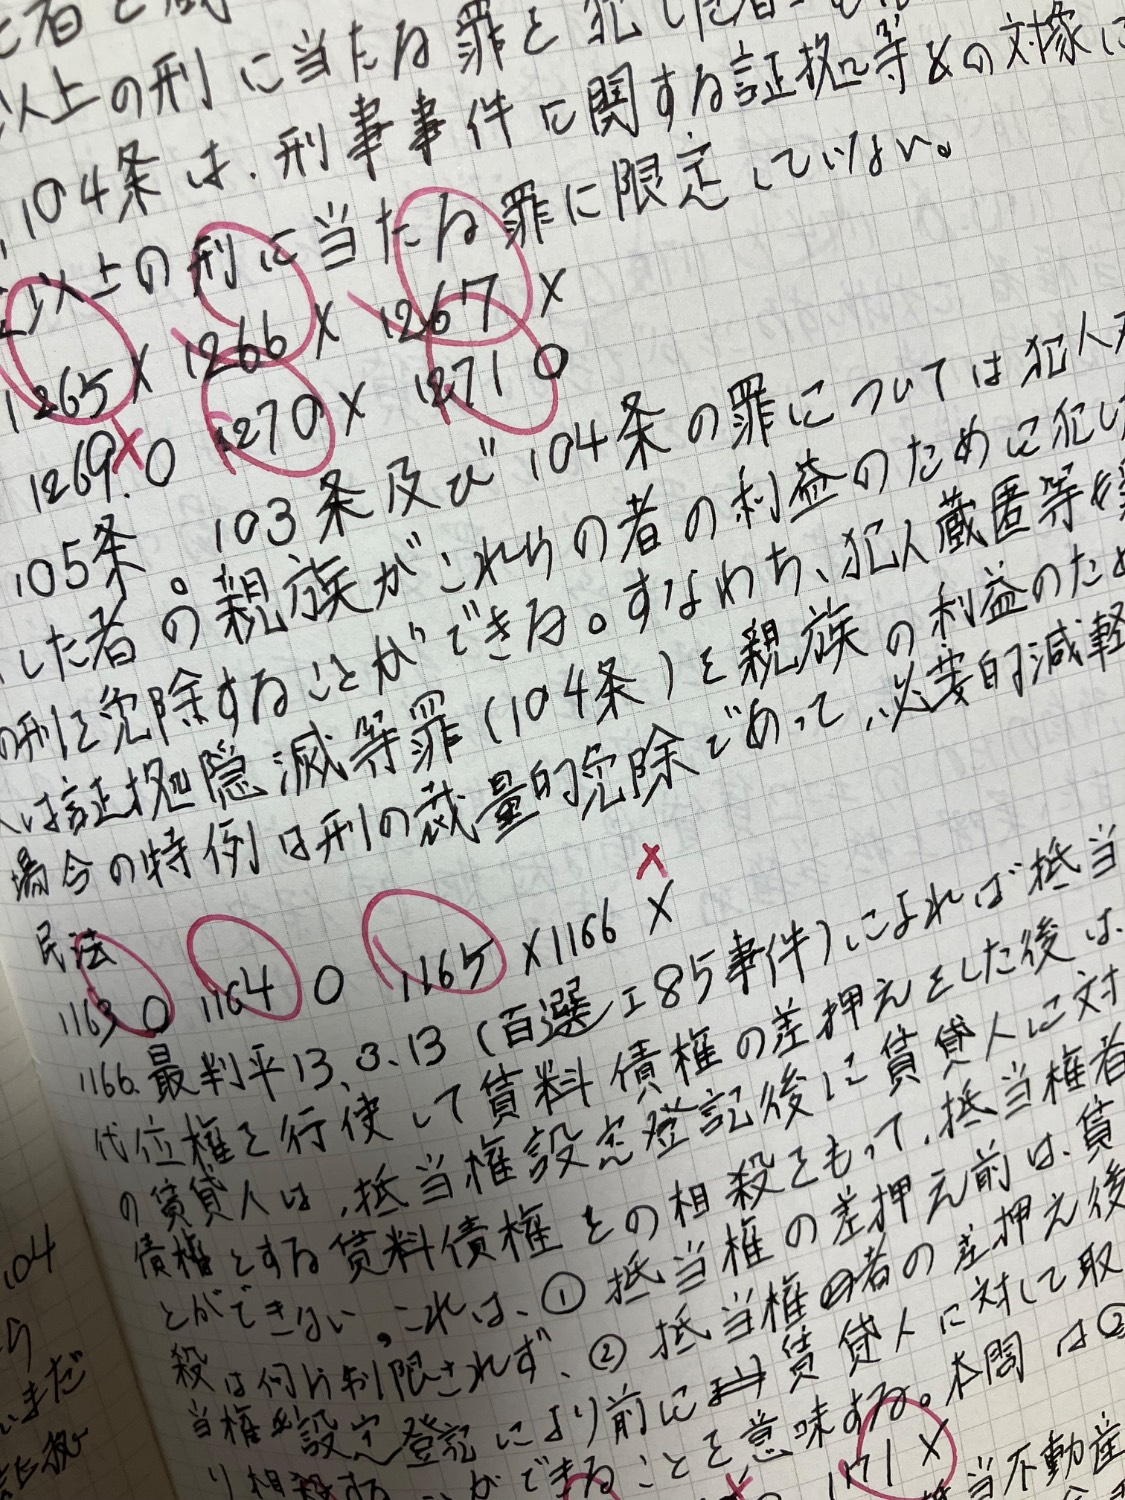 以上の刑に当たる罪を犯した者
104条は、刑事事件に関する証拠等その対象に
以上の刑に当たる罪に限定していない。
1265 × 1266 × 1267 ×
1269. × ○ 1270 × 1271 ○
105条 103条及び104条の罪については犯人
した者の親族がこれらの者の利益のために犯し
の刑を免除することができる。すなわち、犯人蔵匿等
は証拠隠滅等罪(104条)を親族の利益のため
場合の特例は刑の裁量的免除であって、必要的減軽
民法
1163 ○ 1164 ○ 1165 × 1166 × ×
1166. 最判平13.3.13(百選I85事件)によれば抵当
代位権を行使して賃料債権の差押えをした後は、
の賃貸人は、抵当権設定登記後に賃貸人に対
債権とする賃料債権との相殺をもって、抵当権者
とができない。これは、①抵当権の差押え前は、賃
殺は何ら制限されず、②抵当権者の差押え後
当権設定登記により前に賃貸人に対して取
り相殺することができることを意味する。本問は②
1171 ×
当不動産
104
ら
いまだ